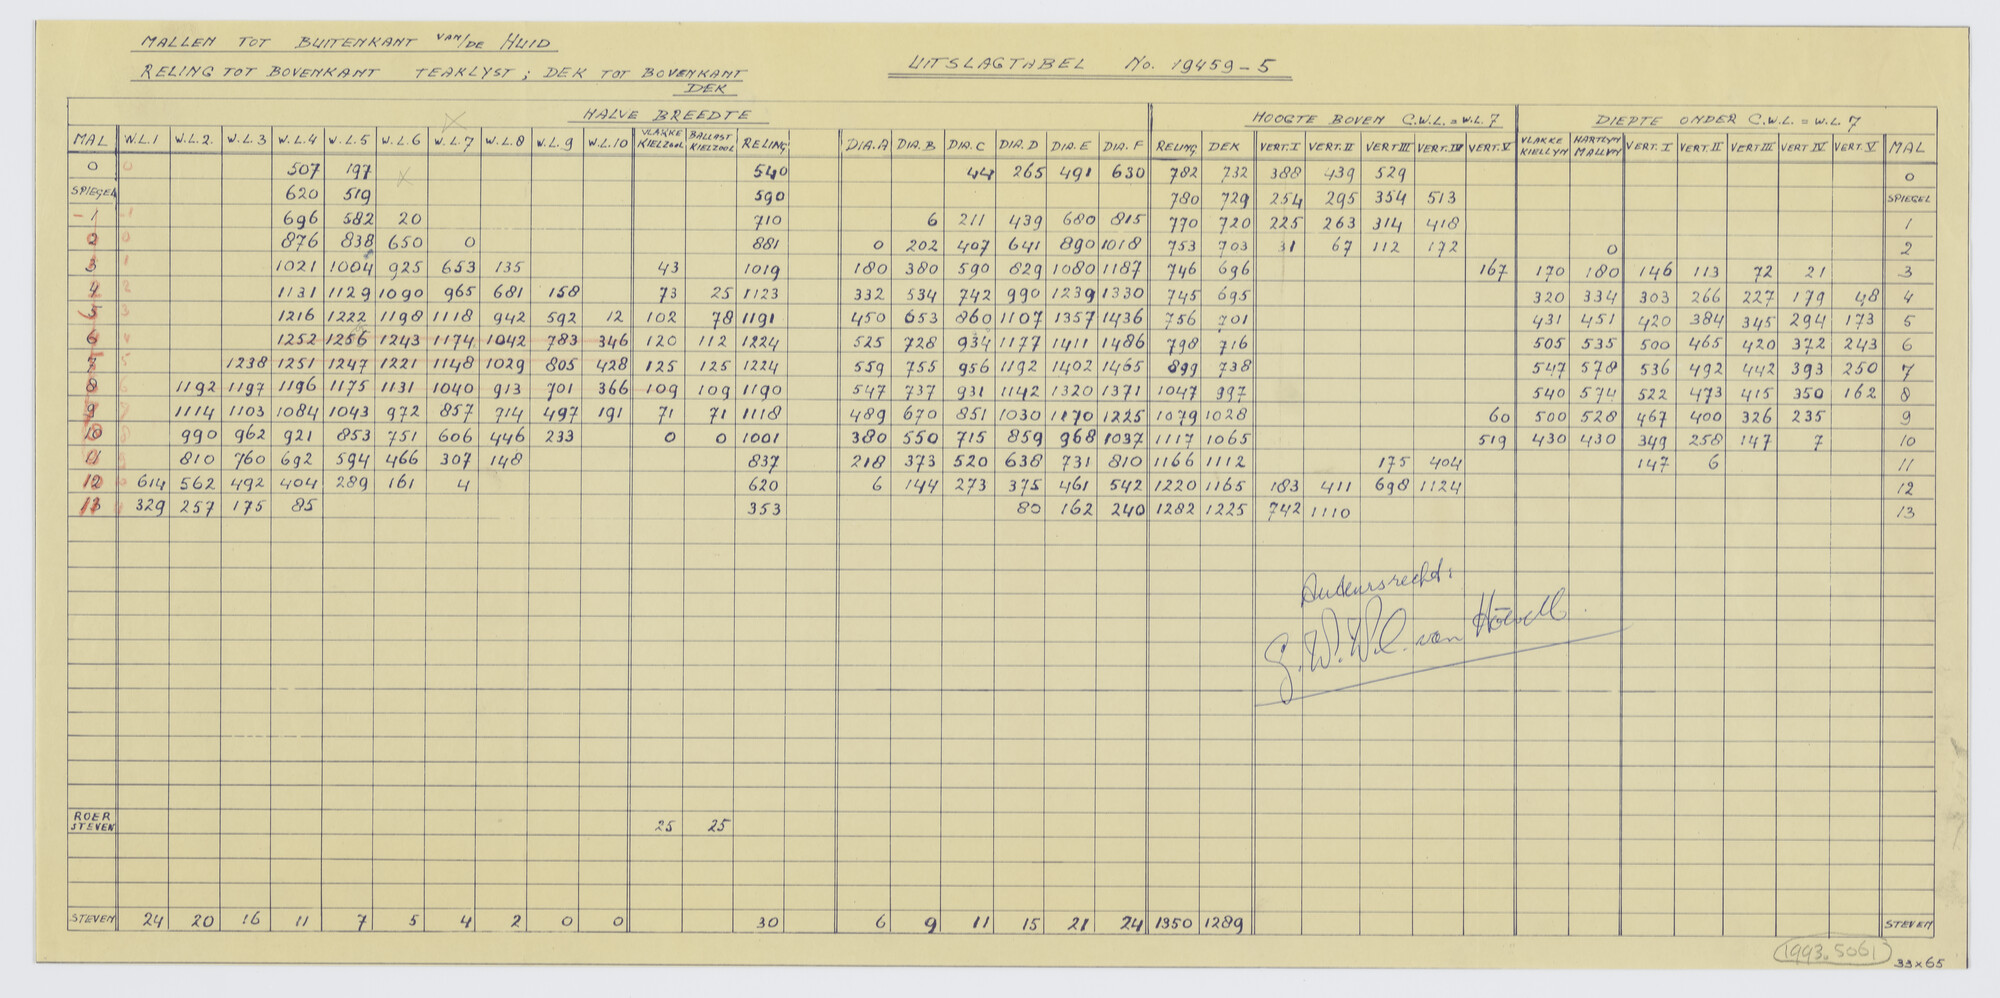 MALLEN TOT BUITENKANT VAN/DE HUID
RELING TOT BOVENKANT TEAKLYST; DEK TOT BOVENKANT
DEK
UITSLAGTABEL No. 19459-5
HALVE BREEDTE HOOGTE BOVEN C.W.L.=W.L.7 DIEPTE ONDER C.W.L.=W.L.7
MAL W.L.1 W.L.2. W.L.3 W.L.4 W.L.5 W.L.6 W.L.7 W.L.8 W.L.9 W.L.10 VLAKKE KIELZOOL BALLAST KIELZOOL RELING DIA.A DIA.B DIA.C DIA.D DIA.E DIA.F RELING DEK VERT.I VERT.II VERT III VERT.IV VERT.V VLAKKE KIELLYN HARTLYN MALLYN VERT.I VERT.II VERT III VERT IV VERT.V MAL
0 0 507 197 540 44 265 491 630 782 732 388 439 529 0
SPIEGEL 620 519 590 780 729 254 295 354 513 SPIEGEL
-1 -1 696 582 20 710 6 211 439 680 815 770 720 225 263 314 418 1
2 0 876 838 650 0 881 0 202 407 641 890 1018 753 703 31 67 112 172 0 2
3 1 1021 1004 925 653 135 43 1019 180 380 590 829 1080 1187 746 696 167 170 180 146 113 72 21 3
4 2 1131 1129 1090 965 681 158 73 25 1123 332 534 742 990 1239 1330 745 695 320 334 303 266 227 179 48 4
5 3 1216 1222 1198 1118 942 592 12 102 78 1191 450 653 860 1107 1357 1436 756 701 431 451 420 384 345 294 173 5
6 4 1252 1256 1243 1174 1042 783 346 120 112 1224 525 728 934 1177 1411 1486 798 716 505 535 500 465 420 372 243 6
7 5 1238 1251 1247 1221 1148 1029 805 428 125 125 1224 559 755 956 1192 1402 1465 899 738 547 578 536 492 442 393 250 7
8 6 1192 1197 1196 1175 1131 1040 913 701 366 109 109 1190 547 737 931 1142 1320 1371 1047 997 540 574 522 473 415 350 162 8
9 1114 1103 1084 1043 972 857 714 497 191 71 71 1118 489 670 851 1030 1170 1225 1079 1028 60 500 528 467 400 326 235 9
10 990 962 921 853 751 606 446 233 0 0 1001 380 550 715 859 968 1037 1117 1065 519 430 430 349 258 147 7 10
11 810 760 692 594 466 307 148 837 218 373 520 638 731 810 1166 1112 175 404 147 6 11
12 614 562 492 404 289 161 4 620 6 144 273 375 461 542 1220 1165 183 411 698 1124 12
13 329 257 175 85 353 80 162 240 1282 1225 742 1110 13
Auteursrecht:
G.W.W.C. van Höevell.
ROER STEVEN 25 25
STEVEN 24 20 16 11 7 5 4 2 0 0 30 6 9 11 15 21 24 1350 1289 STEVEN
1993.5061
33x65